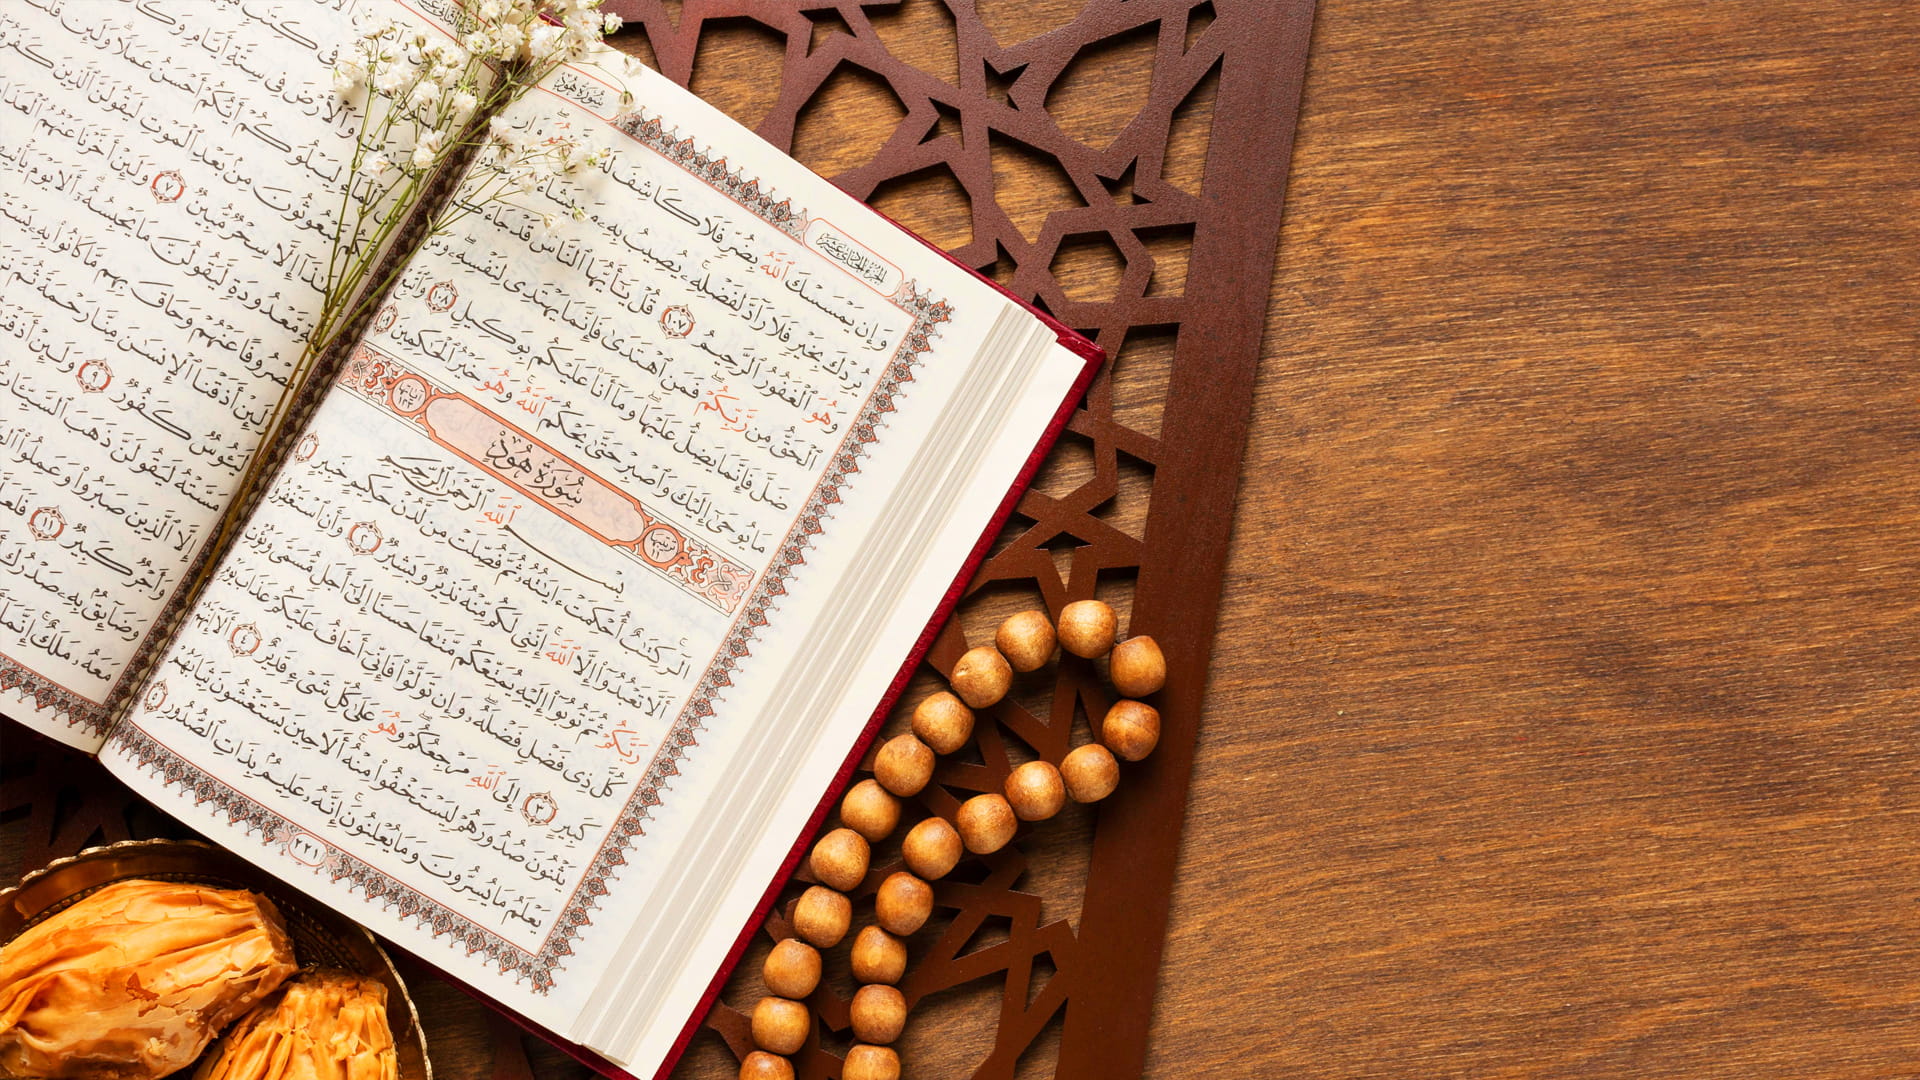 سُورَةُ هُودٍ
الجزء الحادي عشر
وَإِن يَمْسَسْكَ ٱللَّهُ بِضُرٍّ فَلَا كَاشِفَ لَهُۥٓ هُوَ ۖ وَإِن
يُرِدْكَ بِخَيْرٍ فَلَا رَآدَّ لِفَضْلِهِۦ ۚ يُصِيبُ بِهِۦ مَن يَشَآءُ
وَهُوَ ٱلْغَفُورُ ٱلرَّحِيمُ ١٠٧ قُلْ يَٰٓأَيُّهَا ٱلنَّاسُ قَدْ جَآءَكُمُ
ٱلْحَقُّ مِن رَّبِّكُمْ ۖ فَمَنِ ٱهْتَدَىٰ فَإِنَّمَا يَهْتَدِى لِنَفْسِهِۦ ۖ وَمَن
ضَلَّ فَإِنَّمَا يَضِلُّ عَلَيْهَا ۖ وَمَآ أَنَا۠ عَلَيْكُم بِوَكِيلٍ ١٠٨ وَٱتَّبِعْ
مَا يُوحَىٰٓ إِلَيْكَ وَٱصْبِرْ حَتَّىٰ يَحْكُمَ ٱللَّهُ ۚ وَهُوَ خَيْرُ ٱلْحَٰكِمِينَ ١٠٩
ترتيبها ١١ سُورَةُ هُودٍ آياتها ١٢٣
بِسْمِ ٱللَّهِ ٱلرَّحْمَٰنِ ٱلرَّحِيمِ
الٓر ۚ كِتَٰبٌ أُحْكِمَتْ ءَايَٰتُهُۥ ثُمَّ فُصِّلَتْ مِن لَّدُنْ حَكِيمٍ خَبِيرٍ ١
أَلَّا تَعْبُدُوٓا۟ إِلَّا ٱللَّهَ ۚ إِنَّنِى لَكُم مِّنْهُ نَذِيرٌ وَبَشِيرٌ ٢ وَأَنِ ٱسْتَغْفِرُوا۟
رَبَّكُمْ ثُمَّ تُوبُوٓا۟ إِلَيْهِ يُمَتِّعْكُم مَّتَٰعًا حَسَنًا إِلَىٰٓ أَجَلٍ مُّسَمًّى وَيُؤْتِ
كُلَّ ذِى فَضْلٍ فَضْلَهُۥ ۖ وَإِن تَوَلَّوْا۟ فَإِنِّىٓ أَخَافُ عَلَيْكُمْ عَذَابَ يَوْمٍ
كَبِيرٍ ٣ إِلَى ٱللَّهِ مَرْجِعُكُمْ ۖ وَهُوَ عَلَىٰ كُلِّ شَىْءٍ قَدِيرٌ ٤ أَلَآ إِنَّهُمْ
يَثْنُونَ صُدُورَهُمْ لِيَسْتَخْفُوا۟ مِنْهُ ۚ أَلَا حِينَ يَسْتَغْشُونَ ثِيَابَهُمْ
يَعْلَمُ مَا يُسِرُّونَ وَمَا يُعْلِنُونَ ۚ إِنَّهُۥ عَلِيمٌۢ بِذَاتِ ٱلصُّدُورِ ٥
٢٢١
وَٱلْأَرْضَ فِى سِتَّةِ أَيَّامٍ وَكَانَ
لِيَبْلُوَكُمْ أَيُّكُمْ أَحْسَنُ عَمَلًا ۗ وَلَئِن قُلْتَ
مَّبْعُوثُونَ مِنۢ بَعْدِ ٱلْمَوْتِ لَيَقُولَنَّ ٱلَّذِينَ كَفَرُوٓا۟
إِلَّا سِحْرٌ مُّبِينٌ ٧ وَلَئِنْ أَخَّرْنَا عَنْهُمُ ٱلْعَذَابَ
مَّعْدُودَةٍ لَّيَقُولُنَّ مَا يَحْبِسُهُۥٓ ۗ أَلَا يَوْمَ يَأْتِيهِمْ
مَصْرُوفًا عَنْهُمْ وَحَاقَ بِهِم مَّا كَانُوا۟ بِهِۦ
وَلَئِنْ أَذَقْنَا ٱلْإِنسَٰنَ مِنَّا رَحْمَةً ثُمَّ
لَيَـُٔوسٌ كَفُورٌ ٩ وَلَئِنْ أَذَقْنَٰهُ
مَسَّتْهُ لَيَقُولَنَّ ذَهَبَ ٱلسَّيِّـَٔاتُ
إِلَّا ٱلَّذِينَ صَبَرُوا۟ وَعَمِلُوا۟
وَأَجْرٌ كَبِيرٌ ١١ فَلَعَلَّكَ
وَضَآئِقٌۢ بِهِۦ صَدْرُكَ
مَعَهُۥ مَلَكٌ ۚ إِنَّمَآ